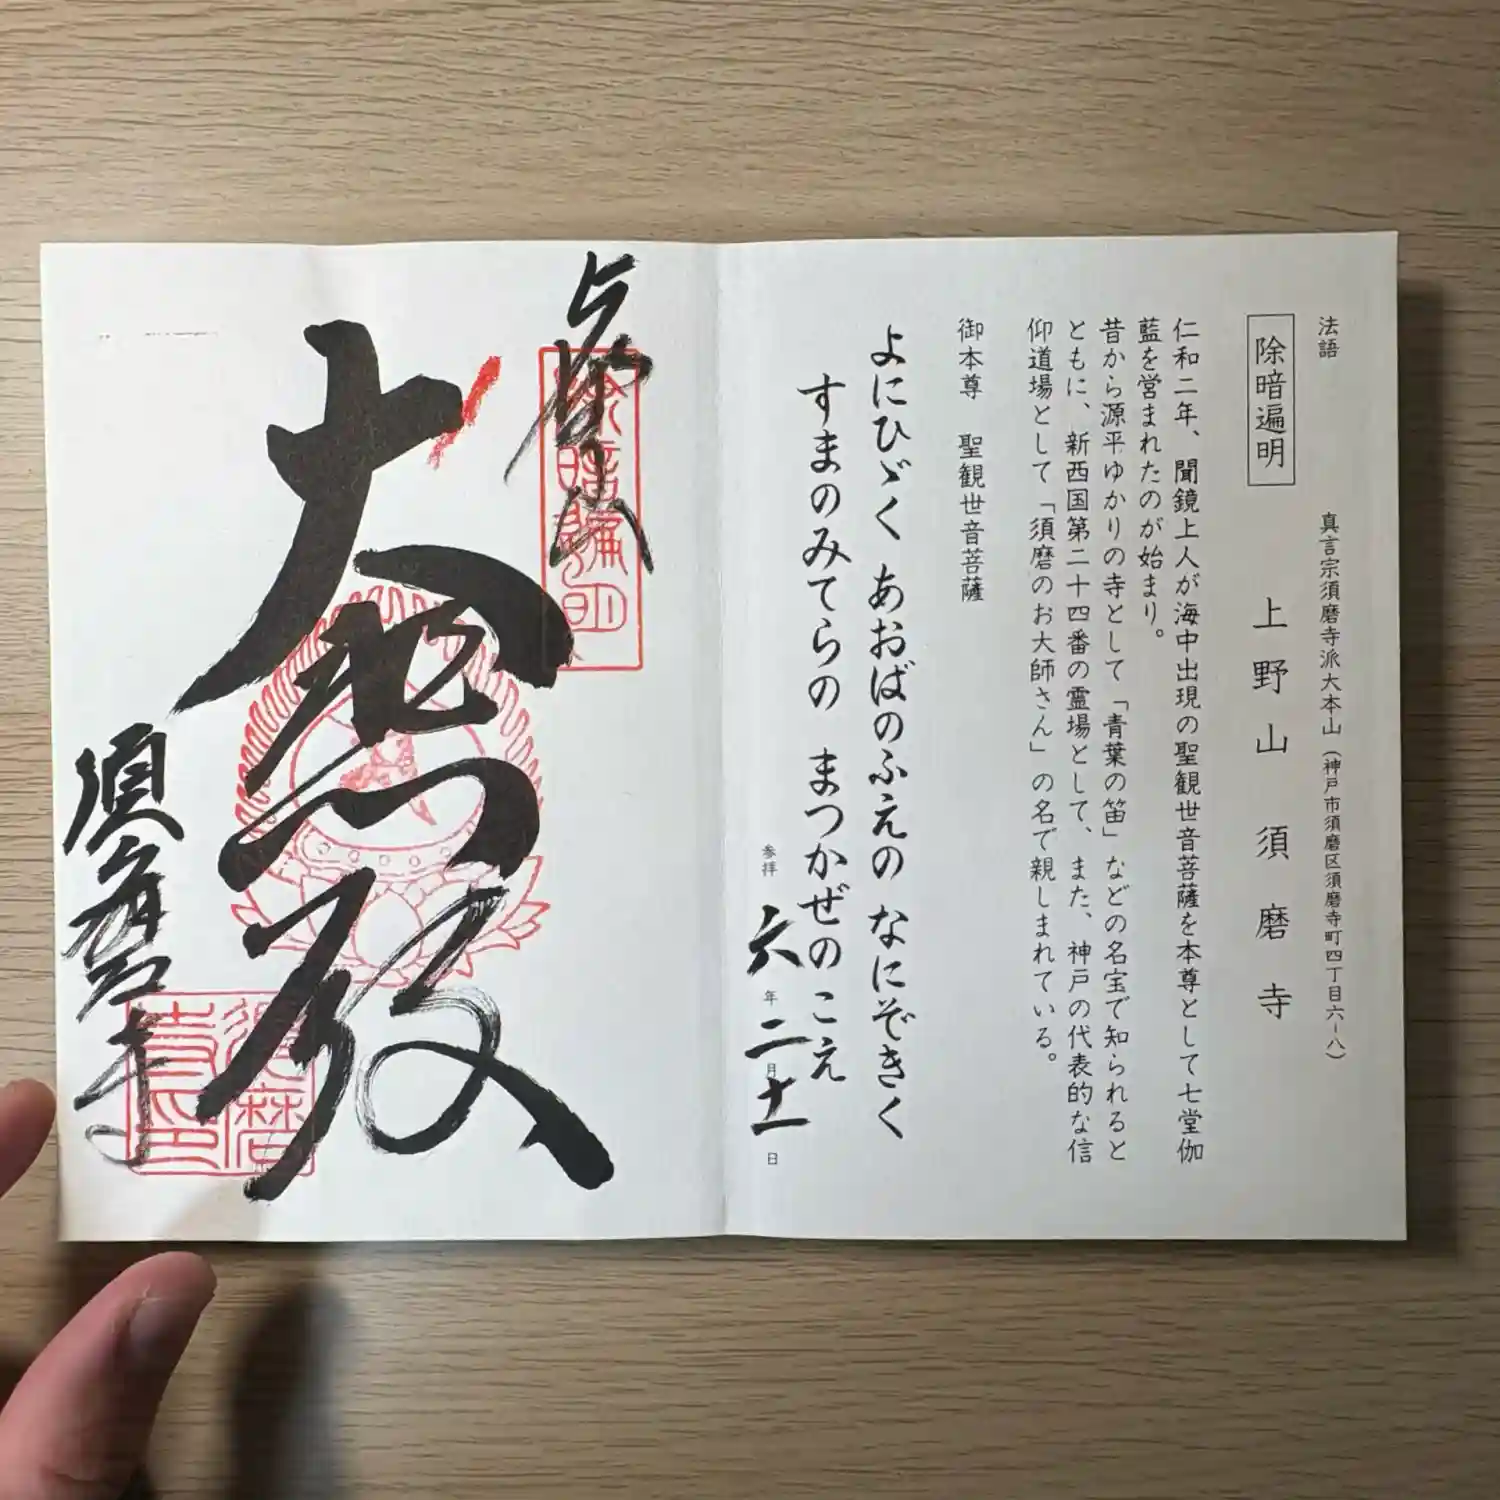 法語
真言宗須磨寺派大本山（神戸市須磨区須磨寺町四丁目六-八）
除暗遍明
上野山 須磨寺
仁和二年、聞鏡上人が海中出現の聖観世音菩薩を本尊として七堂伽
藍を営まれたのが始まり。
昔から源平ゆかりの寺として「青葉の笛」などの名宝で知られると
ともに、新西国第二十四番の霊場として、また、神戸の代表的な信
仰道場として「須磨のお大師さん」の名で親しまれている。
御本尊 聖観世音菩薩
よにひゞく あおばのふえの なにぞきく
すまのみてらの まつかぜのこえ
参拝 六年二月十一日
上野山
除暗遍明
大悲殿
須磨寺
須磨
寺印